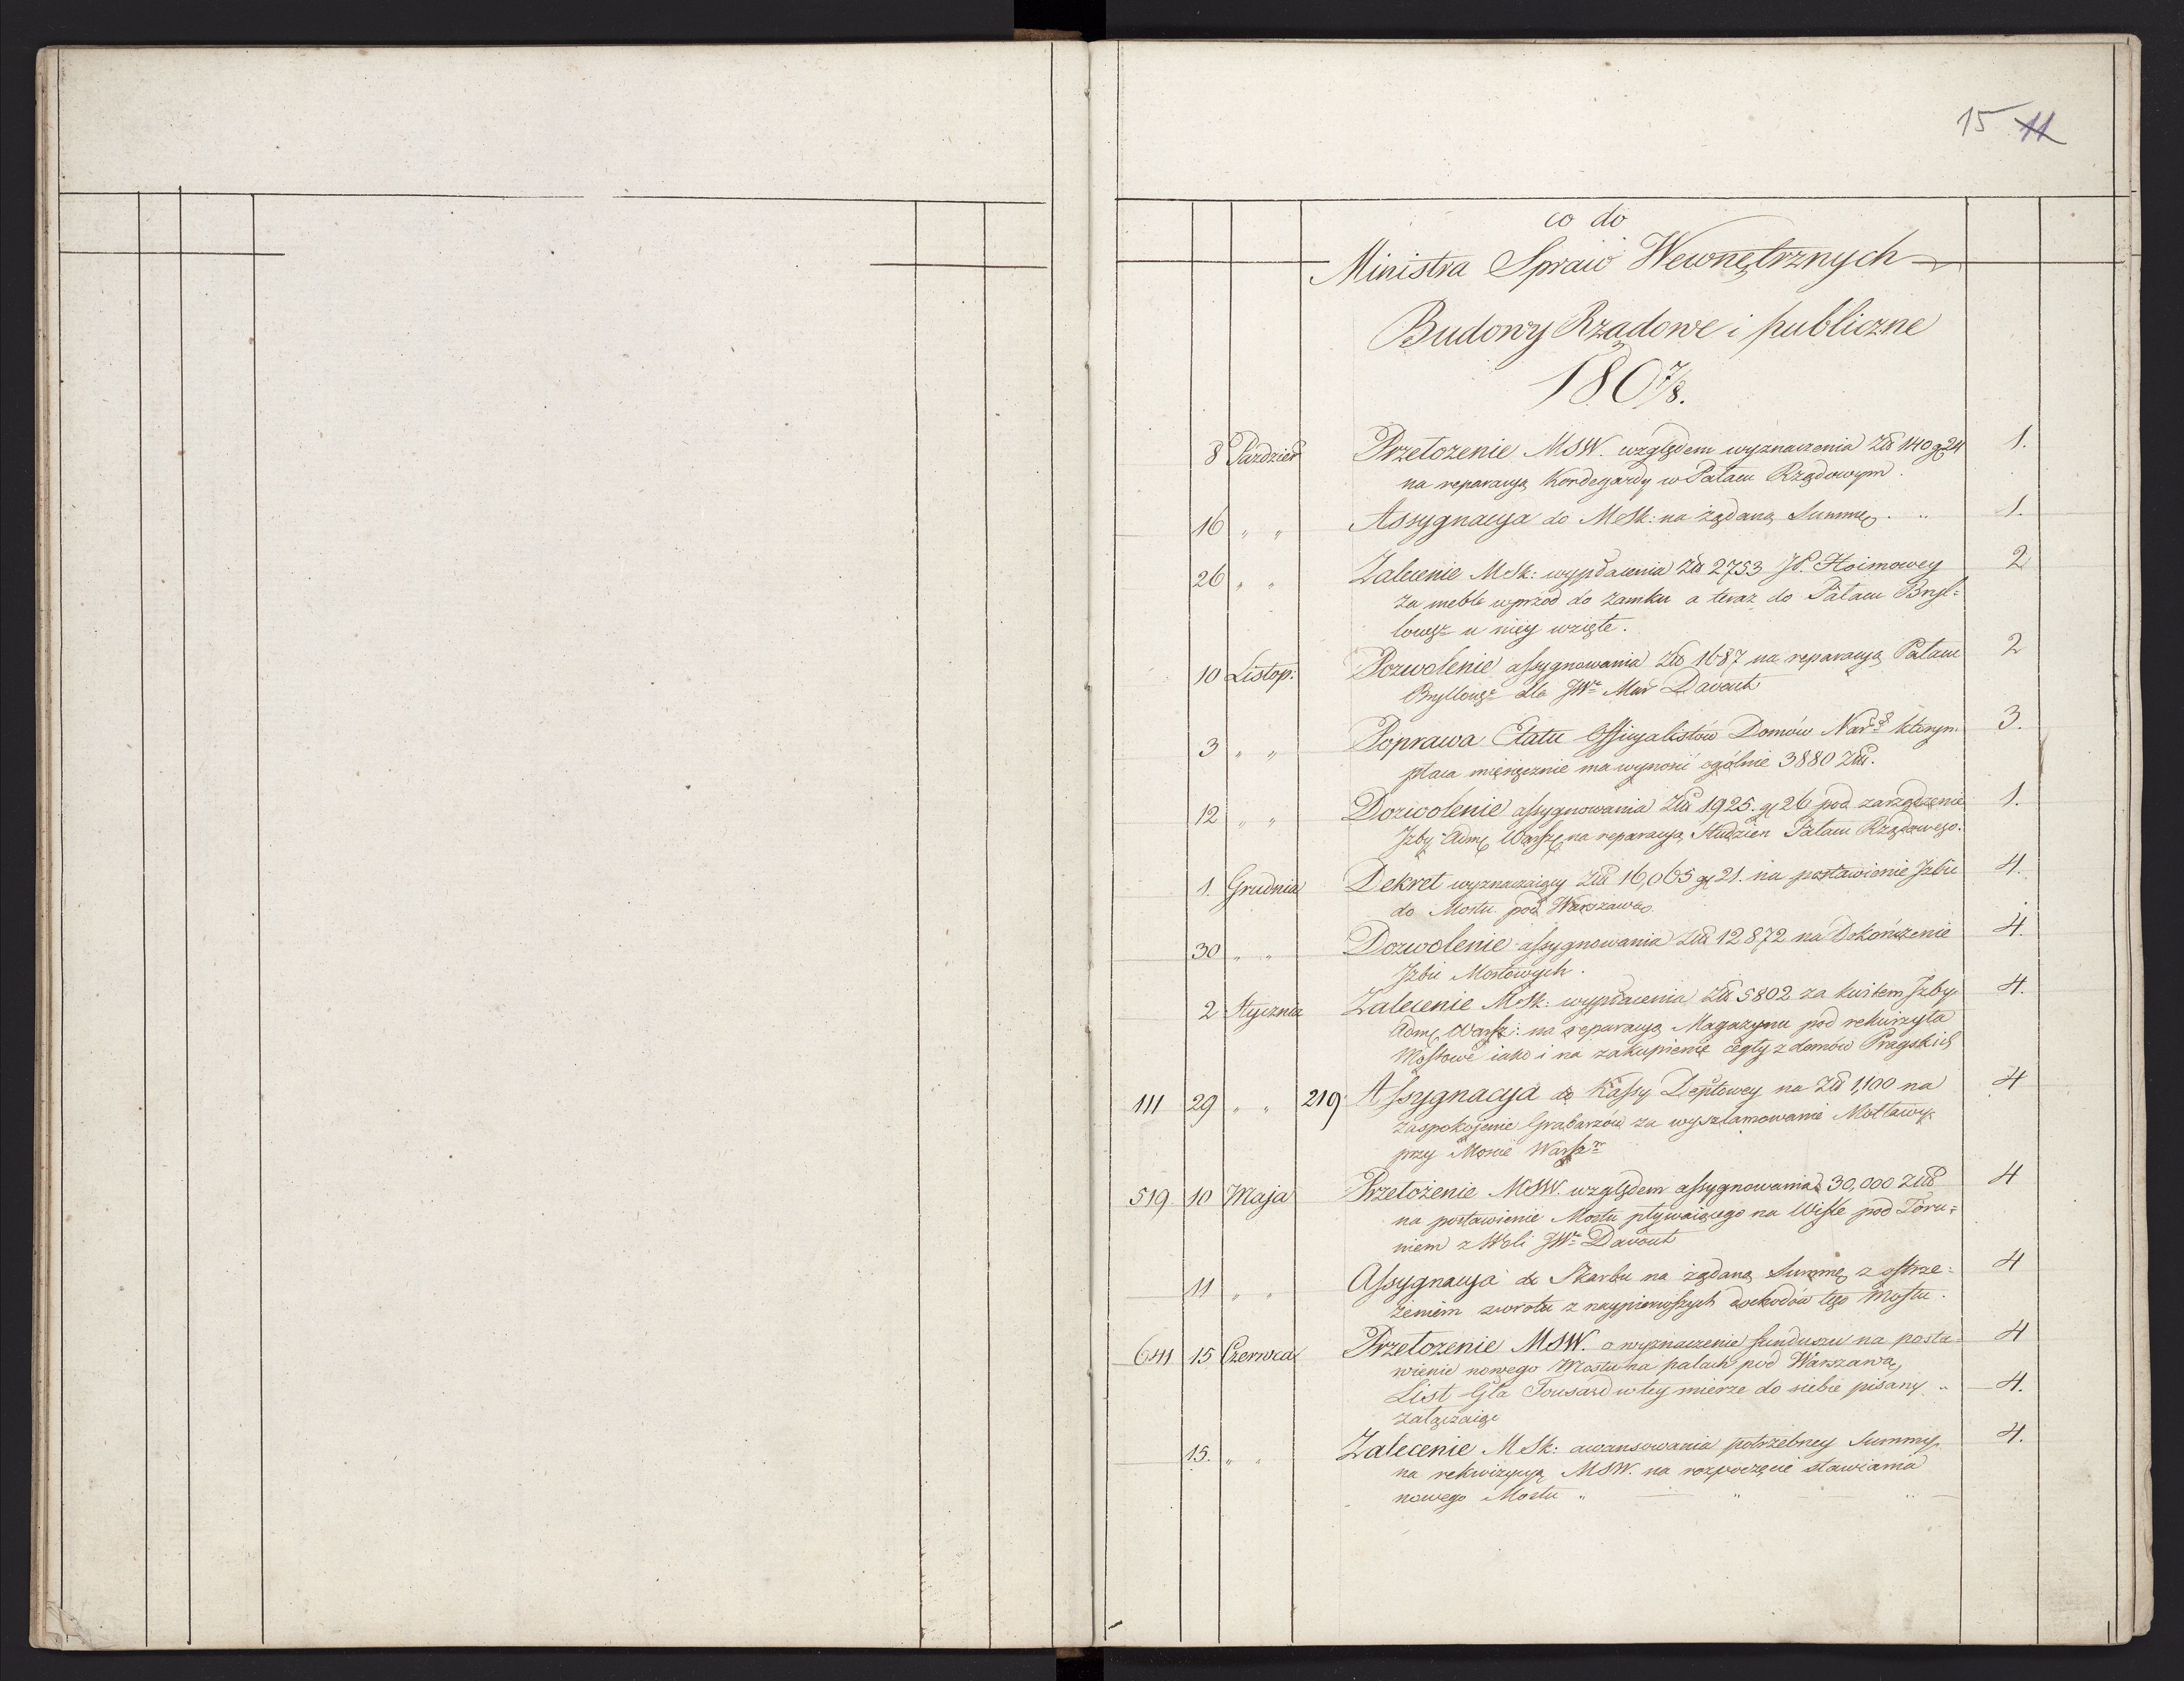 15 11
co do
Ministra Spraw Wewnętrznych
Budowy Rządowe i publiczne
180 7/8.
8 Paździer Przełożenie MSW. względem wyznaczenia Złł 1140 gr 24 1.
na reparacyą Kordegardy w Pałacu Rządowym.
16 " " Assygnacya do MSk: na żądaną Summę. " 1.
26 " " Zalecenie MSk: wypłacenia Złł 2753 JP. Hoimowey 2
za meble wprzód do zamku a teraz do Pałacu Bryl=
lowsg u niey wzięte.
10 Listop: Pozwolenie assygnowania Złł 1687 na reparacyą Pałacu 2
Bryllowsg dla JW Mar Davout
3 " " Poprawa Etatu Officyalistów Domów Nar którym 3.
płaca miesięcznie ma wynosić ogólnie 3880 Złł.
12 " " Dozwolenie assygnowania Złł 1925. gr 26 pod zarządzenie 1.
Jzby Adm Warsz na reparacyą Studzien Pałacu Rządowego.
1. Grudnia Dekret wyznaczaiący Złł 16,065 gr 21. na postawienie Jzbic 4.
do Mostu pod Warszawą.
30 " " Dozwolenie assygnowania Złł 12872 na Dokończenie 4.
Jzbic Mostowych.
2 Stycznia Zalecenie MSk: wypłacenia Złł 5802 za kwitem Jzby 4.
Adm Warsz: na reparacyą Magazynu pod rekwizyta
Mostowe iako i na zakupienie cegły z domów Pragskich
111 29 " " 219 Assygnacya do Kassy Deptowey na Złł 1,100 na 4
zaspokojenie Grabarzów za wyszlamowanie Motławy
przy Moście Warsz
519 10 Maja Przełożenie MSW. względem assygnowania 30,000 Złł 4
na postawienie Mostu pływaiącego na Wiśle pod Toru=
niem z Woli JW Davout
11 " " Assygnacya do Skarbu na żądaną Summę z ostrze= 4
żeniem zwrotu z naypierwszych dochodów tego Mostu.
641 15 Czerwca Przełożenie MSW. o wyznaczenie funduszu na posta= 4
wienie nowego Mostu na palach pod Warszawą,
List Gła Tousard w tey mierze do siebie pisany " 4.
załączaiąc
15. " " Zalecenie MSk: awansowania potrzebney Summy 4.
na rekwizycyą MSW. na rozpoczęcie stawiania
nowego Mostu " " "